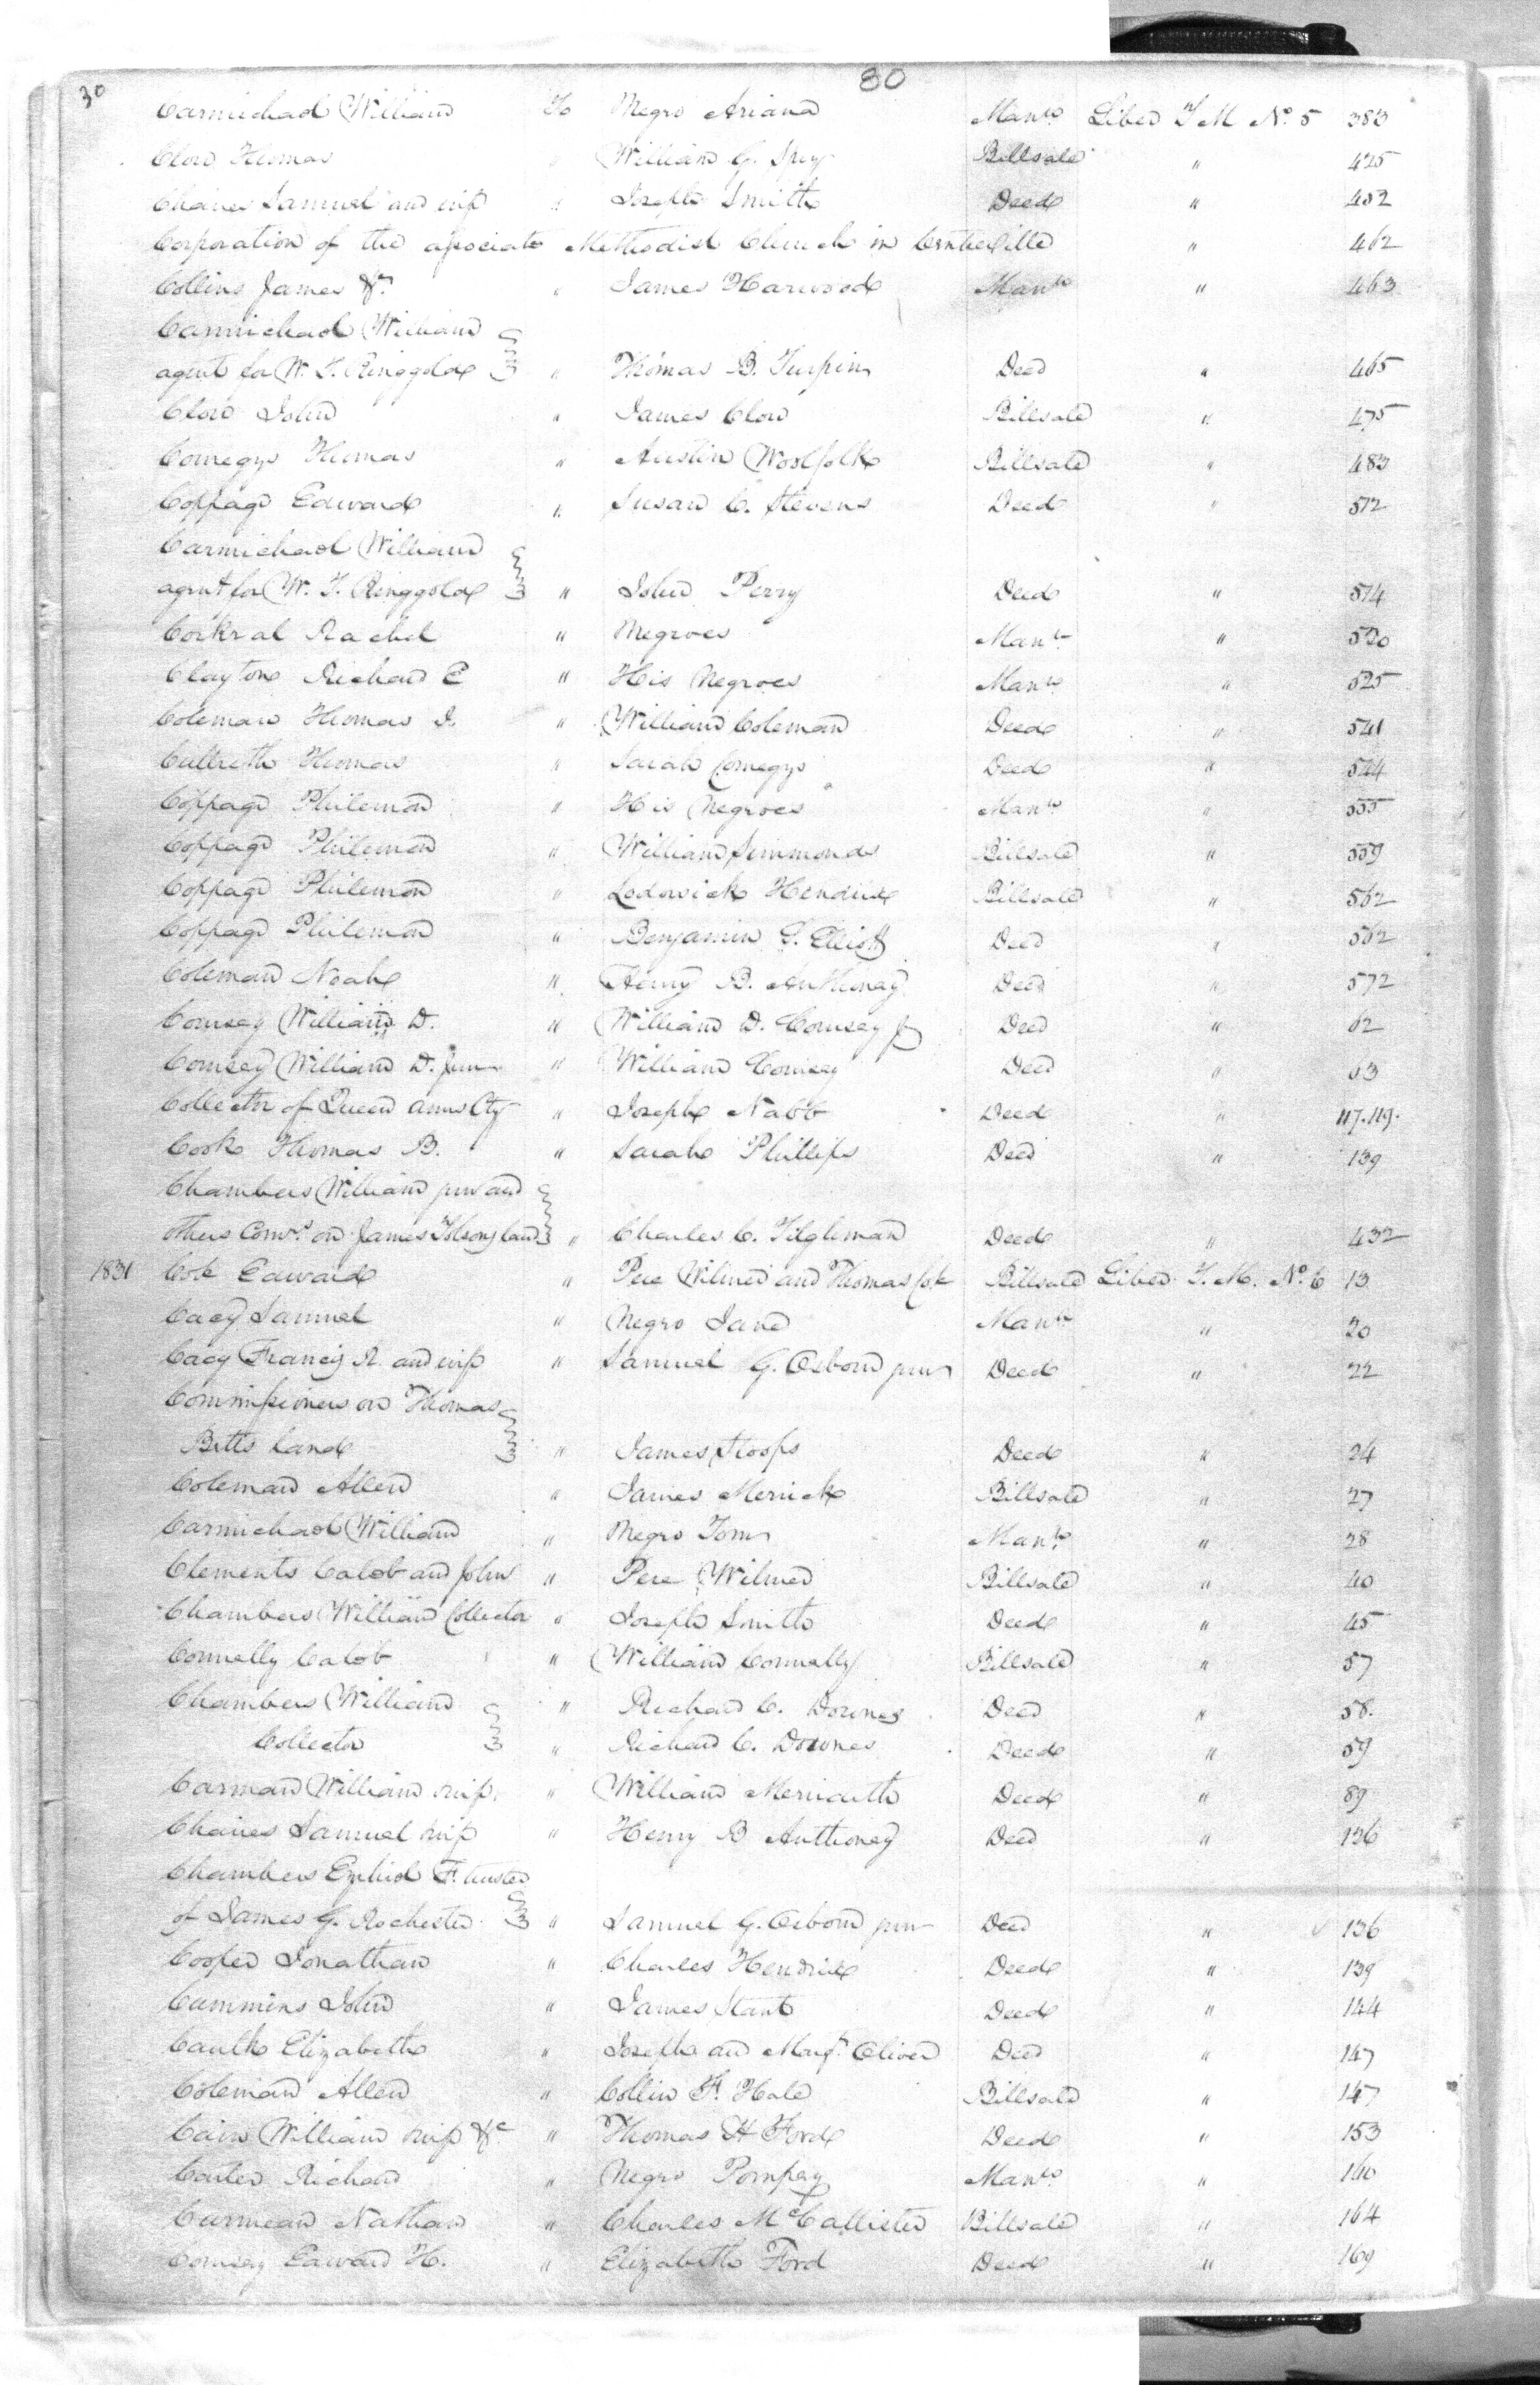 30 80
Carmichael William To Negro Ariana Manⁿ Liber T M No 5 383
Clow Thomas " William G. Spry Billsale " 425
Chaires Samuel and wife " Joseph Smith Deed " 452
Corporation of the associate Methodist Church in Centreville " 462
Collins James &c " James Harwood Manⁿ " 463
Carmichael William
agent for W. T. Ringgold " Thomas B. Turpin Deed " 465
Clow John " James Clow Billsale " 475
Comegys Thomas " Austin Woolfolk Billsale " 483
Coppage Edward " Susan C. Stevens Deed " 512
Carmichael William
agent for W. T. Ringgold " John Perry Deed " 514
Corkral Rachel " Negroes Manⁿ " 520
Clayton Richard E " His Negroes Manⁿ " 525
Coleman Thomas J. " William Coleman Deed " 541
Culbreth Thomas " Sarah Comegys Deed " 544
Coppage Philemon " His Negroes Manⁿ " 555
Coppage Philemon " William Simmonds Billsale " 559
Coppage Philemon " Lodowick Hendrix Billsale " 562
Coppage Philemon " Benjamin G. Elliott Deed " 562
Coleman Noah " Henry B. Anthoney Deed " 572
Comsey William D. " William D. Comsey Jr Deed " 62
Comsey William D. Junr " William Comsey Deed " 63
Collector of Queen Anns Cty " Joseph Nabb Deed " 117.119.
Cook Thomas B. " Sarah Phillips Deed " 139
Chambers William junr and
others Comrs on James Tolsons land " Charles C. Tilghman Deed " 432
1831 Cole Edward " Pere Wilmer and Thomas Cole Billsale Liber T. M. No 6 13
Cacy Samuel " Negro Jane Manⁿ " 20
Cacy Francis R. and wife " Samuel G. Osborn junr Deed " 22
Commissioners on Thomas
Betts land " James Stoops Deed " 24
Coleman Allen " James Merrick Billsale " 27
Carmichael William " Negro Tom Manⁿ " 28
Clements Caleb and John " Pere Wilmer Billsale " 40
Chambers William Collector " Joseph Smith Deed " 45
Connelly Caleb " William Connelly Billsale " 57
Chambers William " Richard C. Downes Deed " 58.
Collector " Richard C. Downes Deed " 59
Carman William wife " William Meriarth Deed " 89
Chaires Samuel wife " Henry B Anthoney Deed " 136
Chambers Ezekiel F. trustee
of James G. Rochester " Samuel G. Osborn junr Deed " 136
Cooper Jonathan " Charles Hendrix Deed " 139
Cummins John " James Stant Deed " 144
Caulk Elizabeth " Joseph and Margt Oliver Deed " 147
Coleman Allen " Collin F. Hale Billsale " 147
Cain William wife &c " Thomas H Ford Deed " 153
Carter Richard " Negro Pompey Manⁿ " 160
Carmean Nathan " Charles McCallister Billsale " 164
Comsey Edward H. " Elizabeth Ford Deed " 169